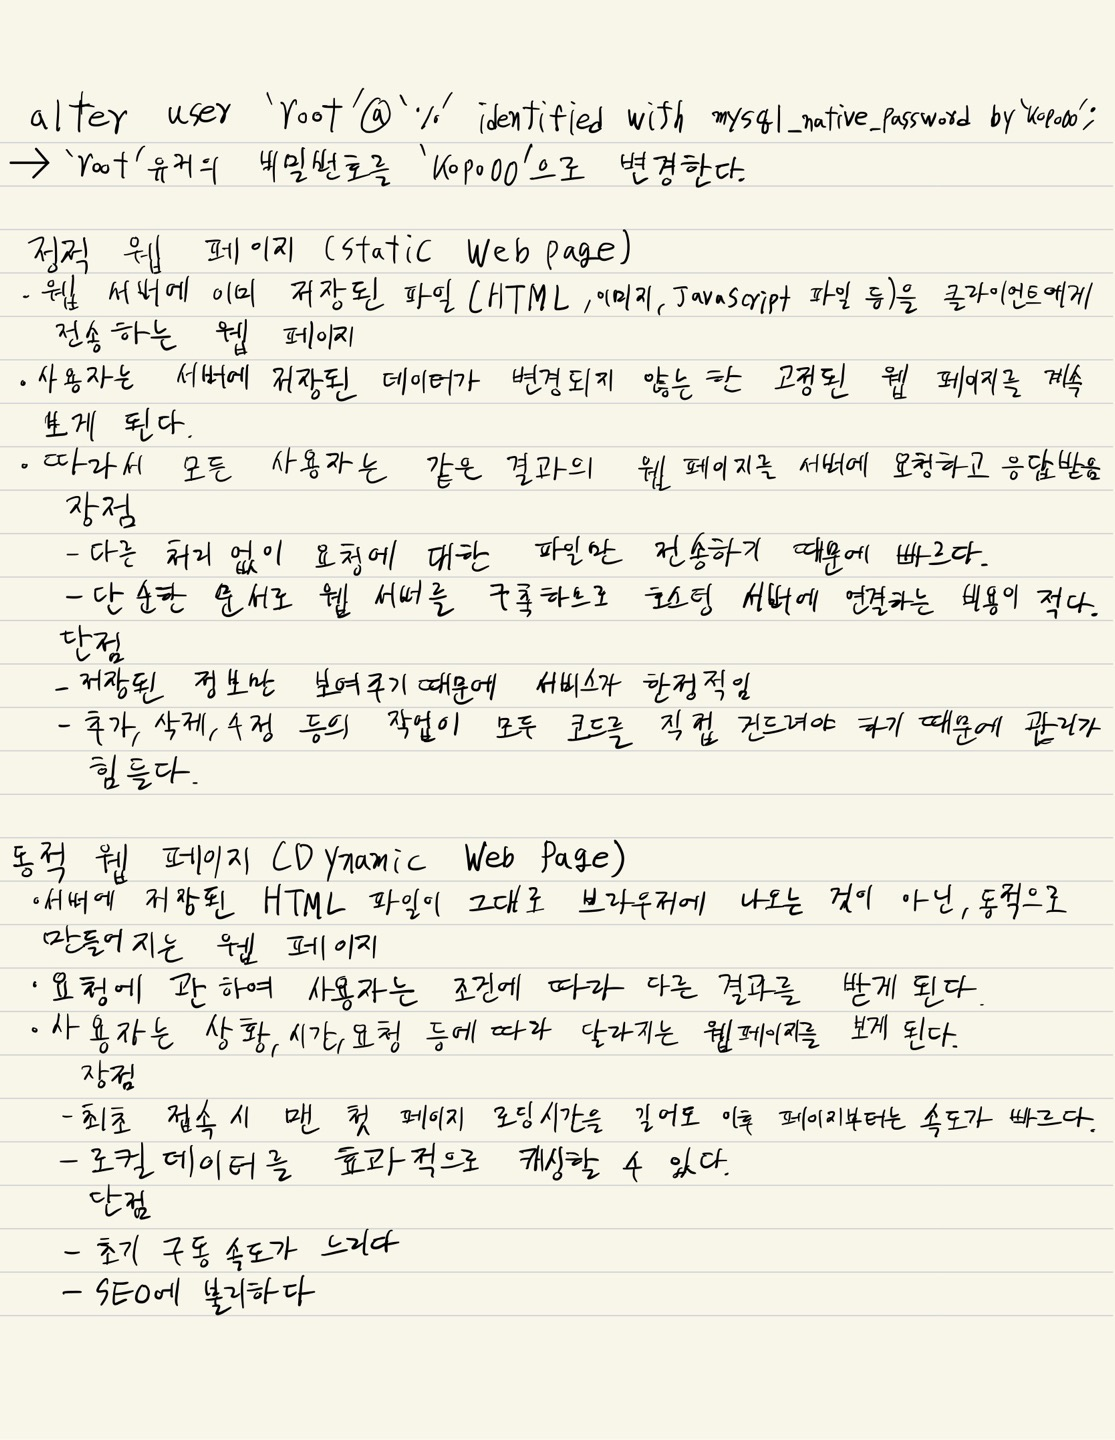 alter user 'root'@'%' identified with mysql_native_password by 'kopo00';
→ 'root'유저의 비밀번호를 'kopo00'으로 변경한다.
정적 웹 페이지 (Static Web page)
· 웹 서버에 이미 저장된 파일 (HTML, 이미지, JavaScript 파일 등)을 클라이언트에게
전송하는 웹 페이지
· 사용자는 서버에 저장된 데이터가 변경되지 않는 한 고정된 웹 페이지를 계속
보게 된다.
· 따라서 모든 사용자는 같은 결과의 웹 페이지를 서버에 요청하고 응답받음
장점
- 다른 처리 없이 요청에 대한 파일만 전송하기 때문에 빠르다.
- 단순한 문서로 웹 서버를 구축하므로 호스팅 서버에 연결하는 비용이 적다.
단점
- 저장된 정보만 보여주기 때문에 서비스가 한정적임
- 추가, 삭제, 수정 등의 작업이 모두 코드를 직접 건드려야 하기 때문에 관리가
힘들다.
동적 웹 페이지 (Dynamic Web Page)
· 서버에 저장된 HTML 파일이 그대로 브라우저에 나오는 것이 아닌, 동적으로
만들어지는 웹 페이지
· 요청에 관하여 사용자는 조건에 따라 다른 결과를 받게 된다.
· 사용자는 상황, 시간, 요청 등에 따라 달라지는 웹페이지를 보게 된다.
장점
- 최초 접속 시 맨 첫 페이지 로딩시간은 길어도 이후 페이지부터는 속도가 빠르다.
- 로컬 데이터를 효과적으로 캐싱할 수 있다.
단점
- 초기 구동 속도가 느리다
- SEO에 불리하다